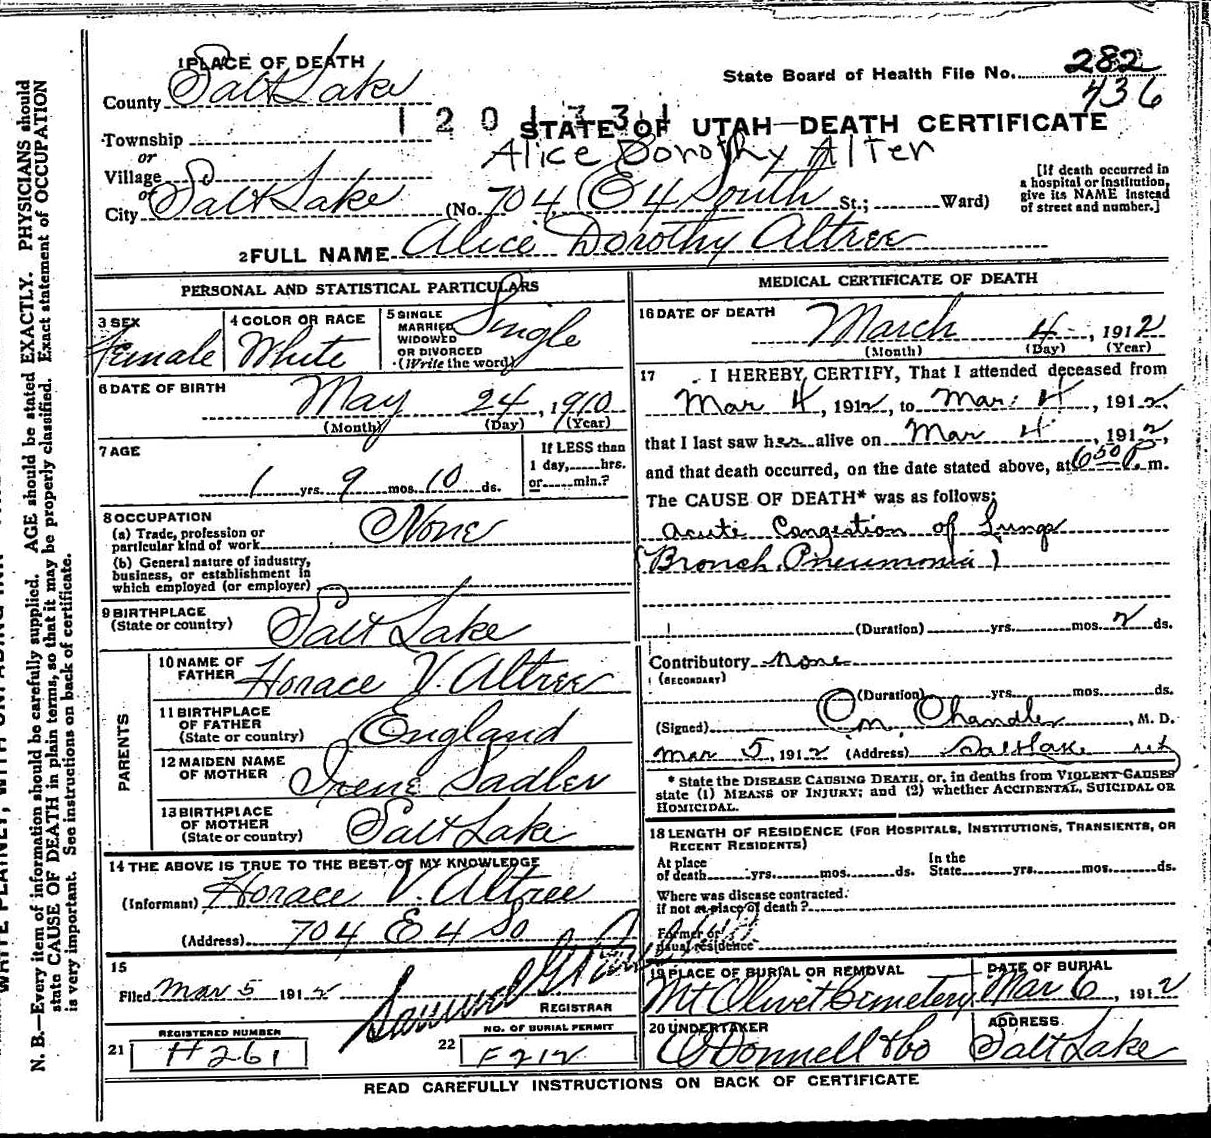 1 PLACE OF DEATH
County Salt Lake
State Board of Health File No. 282
436
1 2 0 1 3 3 1
STATE OF UTAH—DEATH CERTIFICATE
Township
or
Village
Alice Dorothy Alter
or
City Salt Lake (No. 704 E 4 South St.; Ward)
[If death occurred in a hospital or institution, give its NAME instead of street and number.]
2 FULL NAME Alice Dorothy Altree
PERSONAL AND STATISTICAL PARTICULARS
3 SEX Female
4 COLOR OR RACE White
5 SINGLE MARRIED WIDOWED OR DIVORCED (Write the word) Single
6 DATE OF BIRTH May 24, 1910
(Month) (Day) (Year)
7 AGE
1 yrs. 9 mos. 10 ds.
If LESS than 1 day, hrs. or min.?
8 OCCUPATION
(a) Trade, profession or particular kind of work None
(b) General nature of industry, business, or establishment in which employed (or employer)
9 BIRTHPLACE
(State or country) Salt Lake
PARENTS
10 NAME OF FATHER Horace V. Altree
11 BIRTHPLACE OF FATHER (State or country) England
12 MAIDEN NAME OF MOTHER Irene Sadler
13 BIRTHPLACE OF MOTHER (State or country) Salt Lake
14 THE ABOVE IS TRUE TO THE BEST OF MY KNOWLEDGE
(Informant) Horace V. Altree
(Address) 704 E 4 So
15
Filed Mar 5 1912 Samuel G.
REGISTRAR
21 REGISTERED NUMBER H261
22 NO. OF BURIAL PERMIT F212
MEDICAL CERTIFICATE OF DEATH
16 DATE OF DEATH
March 4, 1912
(Month) (Day) (Year)
17 I HEREBY CERTIFY, That I attended deceased from
Mar 4, 1912, to Mar. 4, 1912,
that I last saw her alive on Mar 4, 1912,
and that death occurred, on the date stated above, at 6 50 P. m.
The CAUSE OF DEATH* was as follows:
Acute Congestion of Lungs
(Bronch. Pneumonia)
(Duration) yrs. mos. 2 ds.
Contributory none
(SECONDARY)
(Duration) yrs. mos. ds.
(Signed) Chandler, M. D.
Mar 5, 1912 (Address) Salt Lake Ut
* State the DISEASE CAUSING DEATH, or, in deaths from VIOLENT CAUSES
state (1) MEANS OF INJURY; and (2) whether ACCIDENTAL, SUICIDAL OR
HOMICIDAL.
18 LENGTH OF RESIDENCE (FOR HOSPITALS, INSTITUTIONS, TRANSIENTS, OR
RECENT RESIDENTS)
At place of death yrs. mos. ds. In the State yrs. mos. ds.
Where was disease contracted.
if not at place of death?
Former or
usual residence
19 PLACE OF BURIAL OR REMOVAL Mt Olivet Cemetery
DATE OF BURIAL Mar 6, 1912
20 UNDERTAKER O'Donnell & Co
ADDRESS Salt Lake
READ CAREFULLY INSTRUCTIONS ON BACK OF CERTIFICATE
N. B.—Every item of information should be carefully supplied. AGE should be stated EXACTLY. PHYSICIANS should
state CAUSE OF DEATH in plain terms, so that it may be properly classified. Exact statement of OCCUPATION
is very important. See instructions on back of certificate.